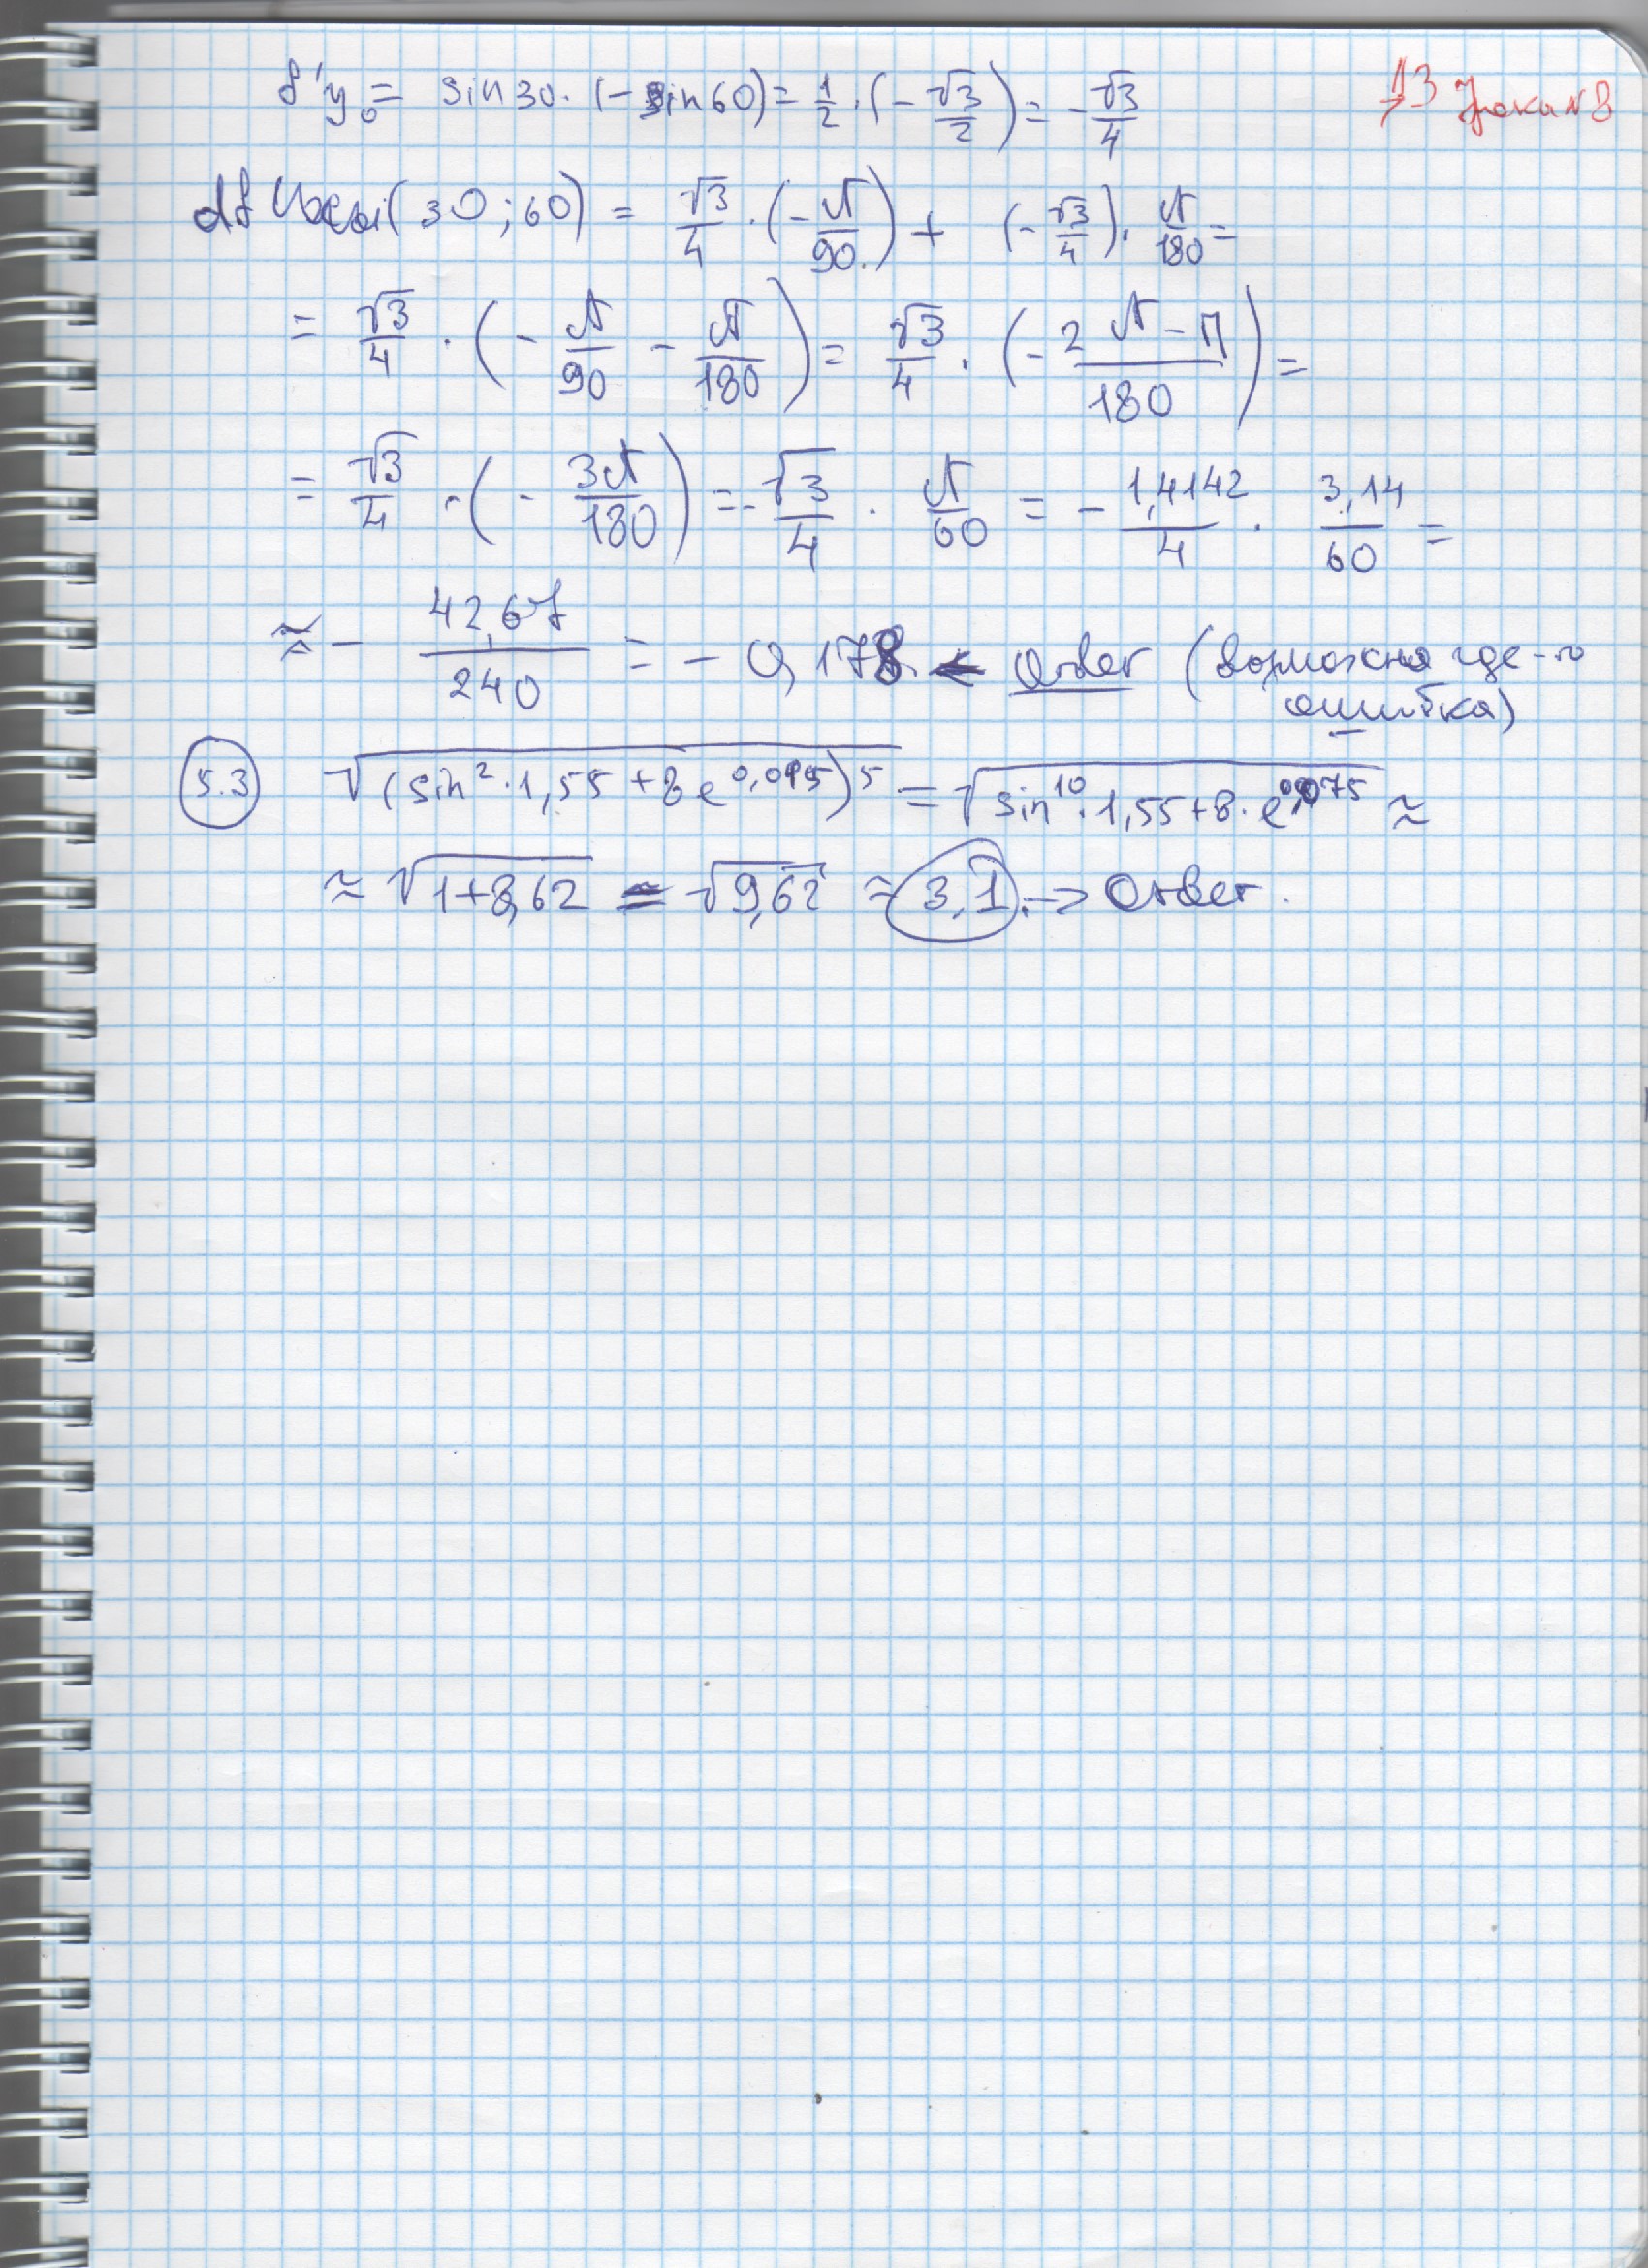 ДЗ Урока №8
f'y₀ = sin30·(-sin60) = 1/2·(-√3/2) = -√3/4
df (30;60) = √3/4·(-π/90) + (-√3/4)·π/180 =
= √3/4·(-π/90 - π/180) = √3/4·(-2π-П/180) =
= √3/4·(-3π/180) = -√3/4·π/60 = -1,4142/4·3,14/60 =
≈ -42,67/240 = -0,178. ← Ответ (возможна где-то
ошибка)
5.3 √(sin²·1,55+8e^0,015)⁵ = √sin¹⁰·1,55+8·e^0,075 ≈
≈ √1+8,62 = √9,62 ≈ 3,1. → Ответ.